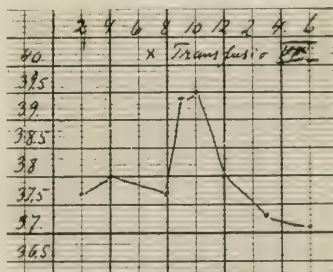 2 4 6 8 10 12 2 4. 6
40 x Transfusio
39.5
39.
38.5
38
37.5
37.
36.5